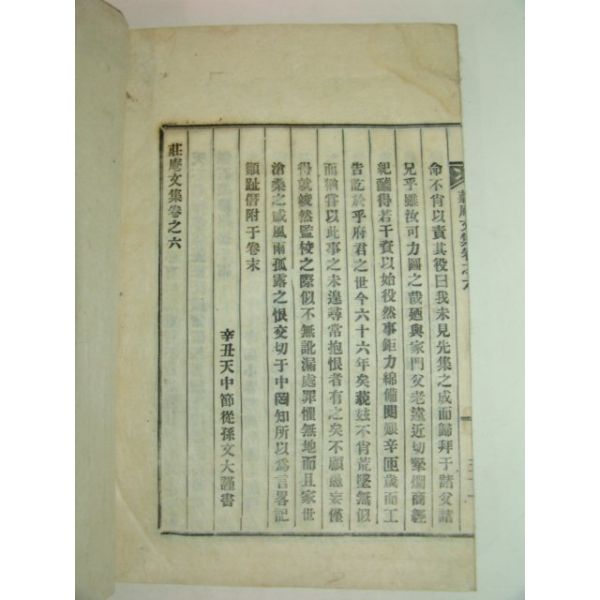 莊庵文集卷之六
命不肖以責其役曰我未見先集之成而歸拜于諸父諸
兄乎雖汝可力圖之哉廼與家門父老遠近切緊爛商經
紀醵得若干資以始役然事鉅力綿備閱艱辛匝歲而工
告訖於乎府君之世今六十六年矣藐玆不肖荒墜無似
而猶嘗以此事之未遑尋常抱恨者有之矣不顧愚妄僅
得就緒然監校之際似不無訛漏處罪懼無地而且家世
滄桑之感風雨孤露之恨交切于中罔知所以爲言畧記
顚趾僭附于卷末
辛丑天中節從孫文大謹書
莊庵文集卷之六